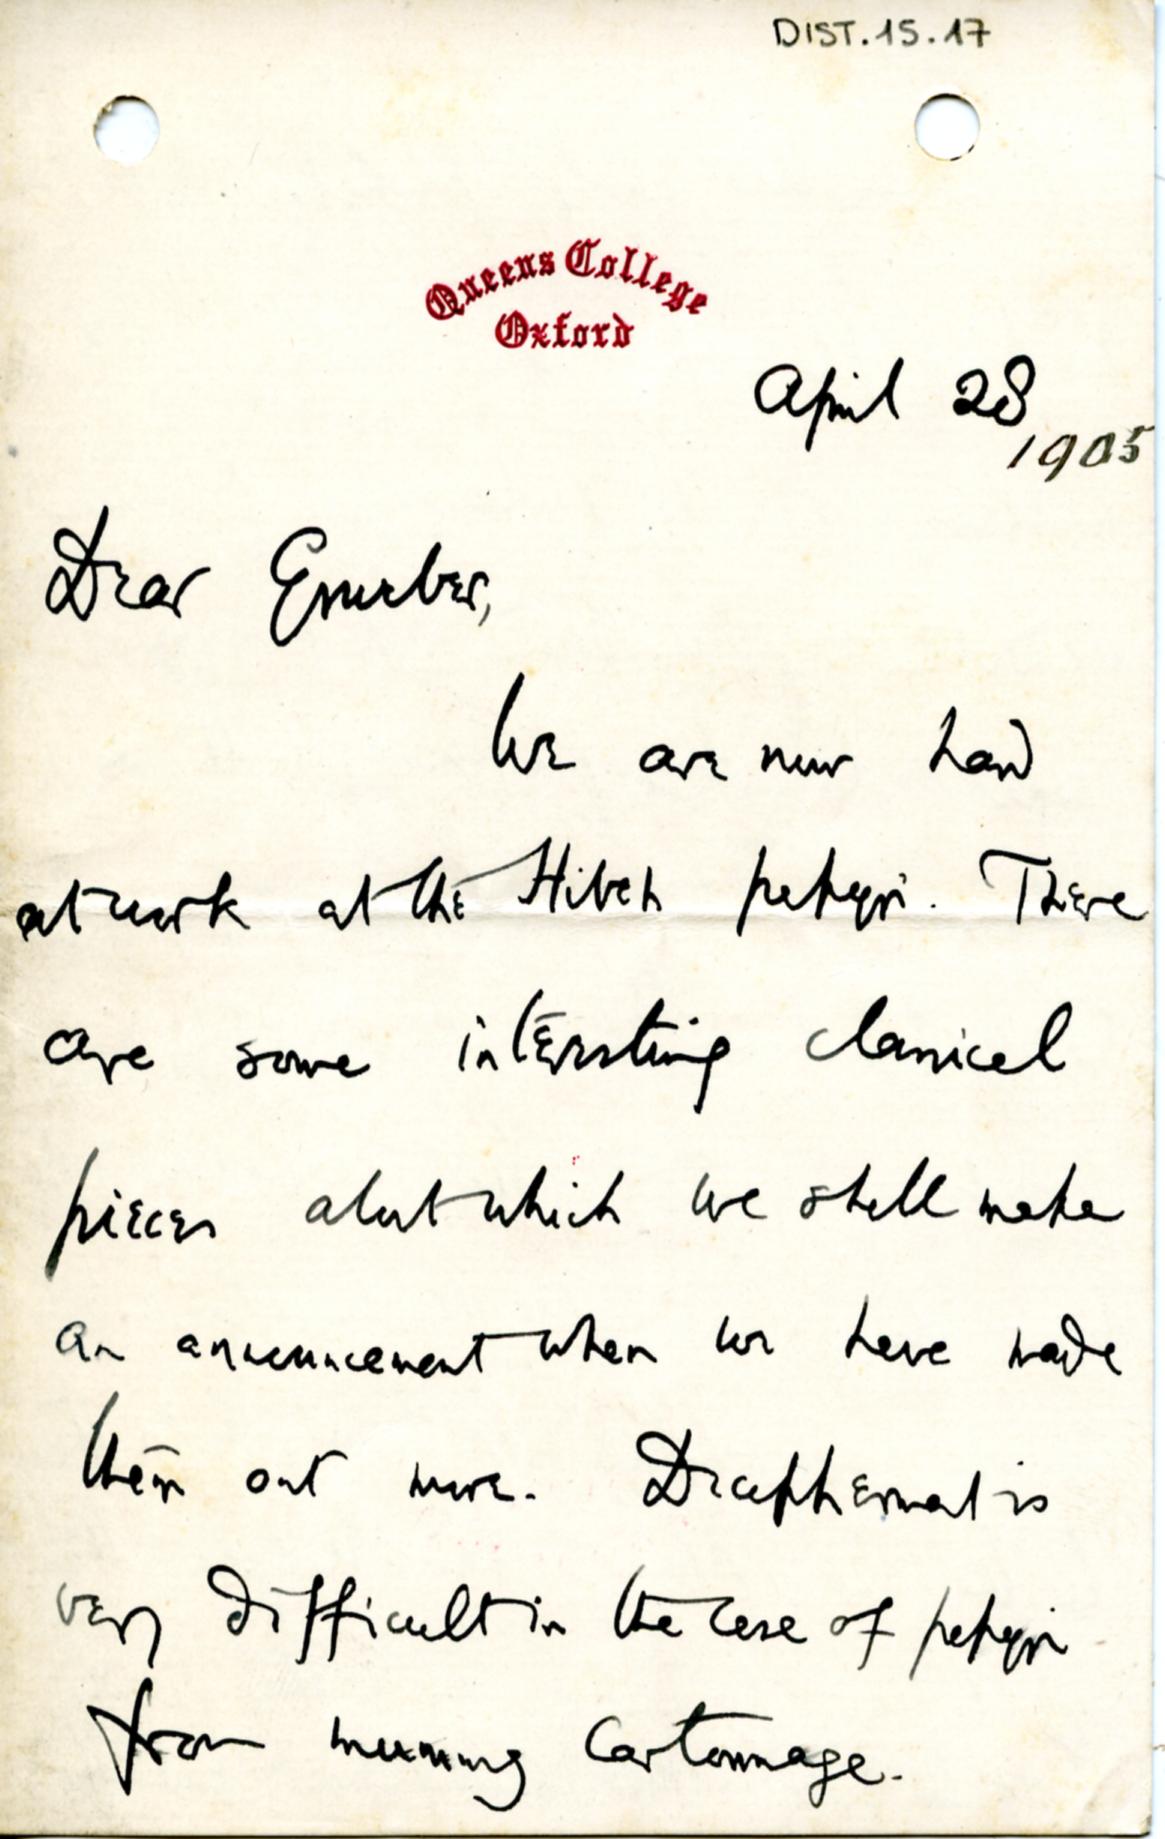 DIST.15.17
Queens College
Oxford
April 28
1905
Dear
We are now hard
at work at the Hibeh papyri. There
are some interesting classical
pieces about which we shall make
an announcement when we have made
them out more. Decipherment is
very difficult in the case of papyri
from mummy cartonnage.